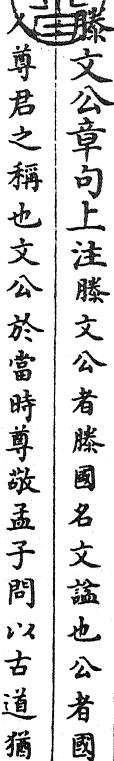 滕文公章句上注滕文公者滕國名文諡也公者國
人尊君之稱也文公於當時尊敬孟子問以古道猶